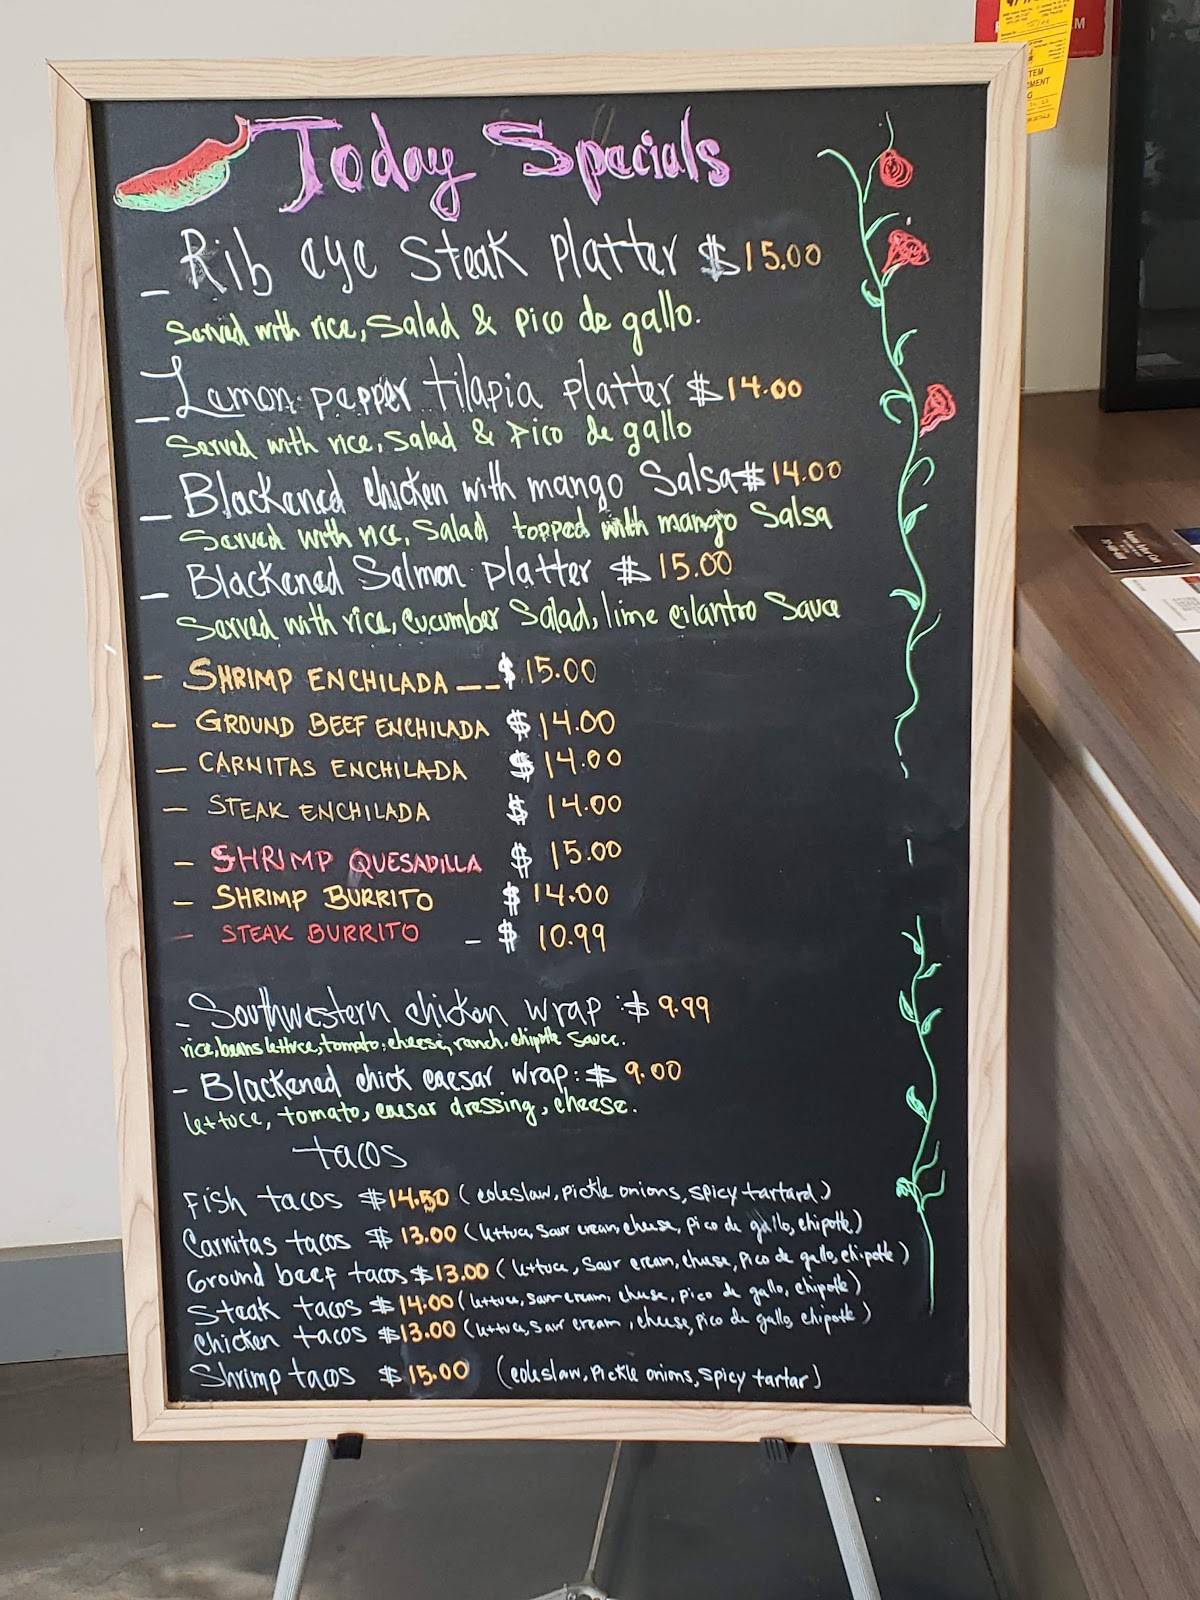 Today Specials
- Rib eye Steak Platter $15.00
Served with rice, Salad & Pico de gallo.
- Lemon pepper tilapia platter $14.00
Served with rice, Salad & Pico de gallo
- Blackened chicken with mango Salsa $14.00
Served with rice, Salad topped with mango Salsa
- Blackened Salmon platter $15.00
Served with rice, cucumber Salad, lime cilantro Sauce
- SHRIMP ENCHILADA -- $15.00
- GROUND BEEF ENCHILADA $14.00
- CARNITAS ENCHILADA $14.00
- STEAK ENCHILADA $14.00
- SHRIMP QUESADILLA $15.00
- SHRIMP BURRITO $14.00
- STEAK BURRITO - $10.99
- Southwestern chicken wrap : $9.99
rice, beans lettuce, tomato, cheese, ranch, chipotle Sauce.
- Blackened chick caesar wrap : $9.00
lettuce, tomato, caesar dressing, cheese.
tacos
Fish tacos $14.50 (coleslaw, pickle onions, spicy tartard)
Carnitas tacos $13.00 (lettuce, sour cream, cheese, pico de gallo, chipotle)
Ground beef tacos $13.00 (lettuce, sour cream, cheese, pico de gallo, chipotle)
Steak tacos $14.00 (lettuce, sour cream, cheese, pico de gallo, chipotle)
chicken tacos $13.00 (lettuce, sour cream, cheese, pico de gallo, chipotle)
Shrimp tacos $15.00 (coleslaw, pickle onions, spicy tartar)